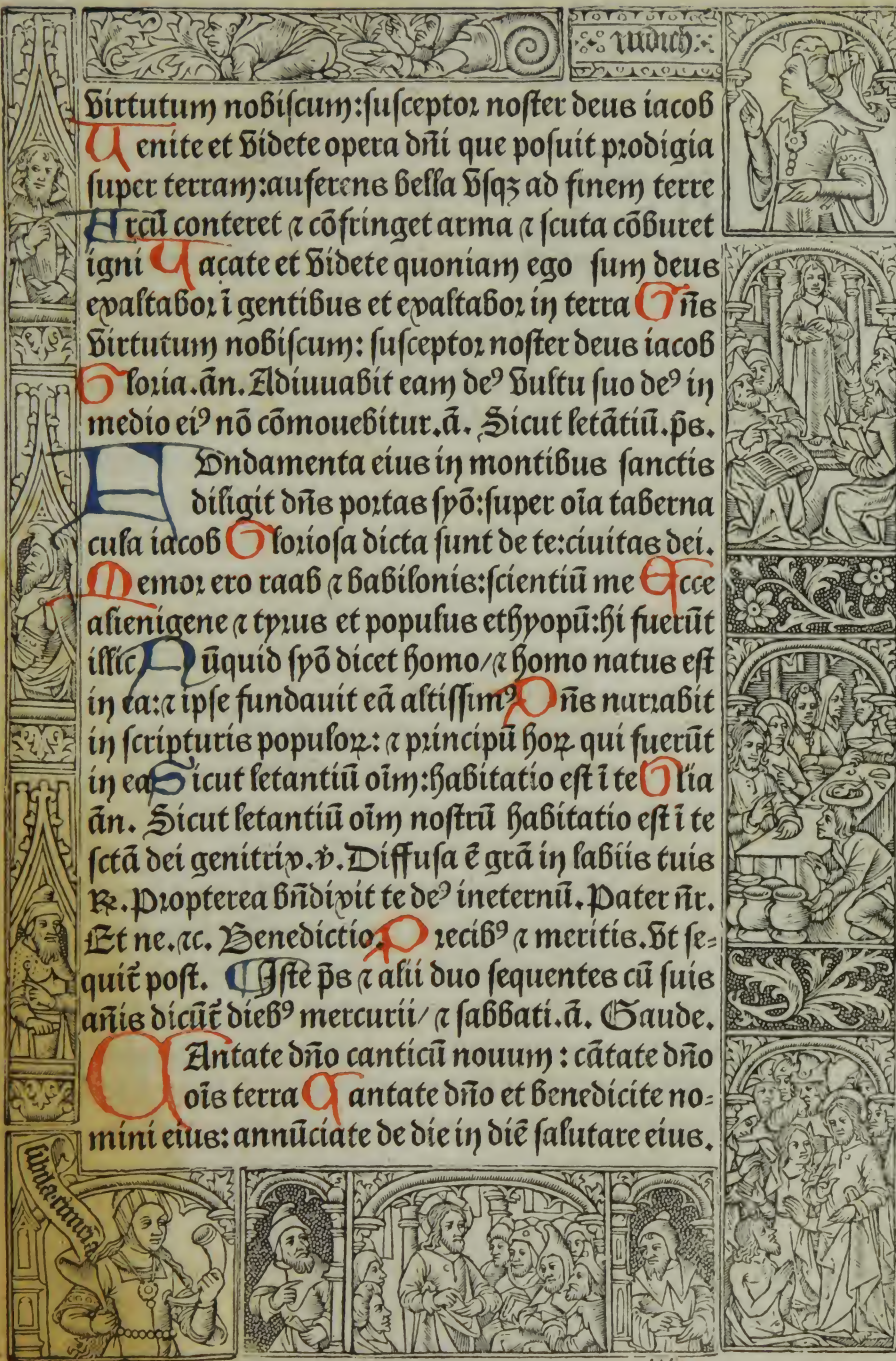 iudich
Virtutum nobiscum: susceptor noster deus iacob
Uenite et videte opera dñi que posuit prodigia
super terram: auferens bella vsqꝫ ad finem terre
Arcũ conteret ⁊ cõfringet arma ⁊ scuta cõburet
igni Uacate et videte quoniam ego sum deus
exaltabor ĩ gentibus et exaltabor in terra Dñs
virtutum nobiscum: susceptor noster deus iacob
Gloria. añ. Adiuuabit eam deꝰ vultu suo deꝰ in
medio eiꝰ nõ cõmouebitur. ã. Sicut letãtiũ. ps̃.
Vndamenta eius in montibus sanctis
diligit dñs portas syõ: super oĩa taberna
cula iacob Gloriosa dicta sunt de te: ciuitas dei.
Memor ero raab ⁊ babilonis: scientiũ me Ecce
alienigene ⁊ tyrus et populus ethyopũ: hi fuerũt
illic Nũquid syõ dicet homo/ ⁊ homo natus est
in ea: ⁊ ipse fundauit eã altissimꝰ Dñs narrabit
in scripturis populoꝝ: ⁊ principũ hoꝝ qui fuerũt
in ea Sicut letantiũ oĩm: habitatio est ĩ te Glĩa
ãn. Sicut letantiũ oĩm nostrũ habitatio est ĩ te
sctã dei genitrix. ℣. Diffusa ẽ grã in labiis tuis
℞. Propterea bñdixit te deꝰ ineternũ. Pater nr̃.
Et ne. ⁊c. Benedictio. Precibꝰ ⁊ meritis. vt se=
quit̃ post. Iste ps̃ ⁊ alii duo sequentes cũ suis
añis dicũt̃ diebꝰ mercurii/ ⁊ sabbati. ã. Gaude.
CAntate dño canticũ nouum: cãtate dño
oĩs terra Cantate dño et benedicite no=
mini eius: annũciate de die in diẽ salutare eius.